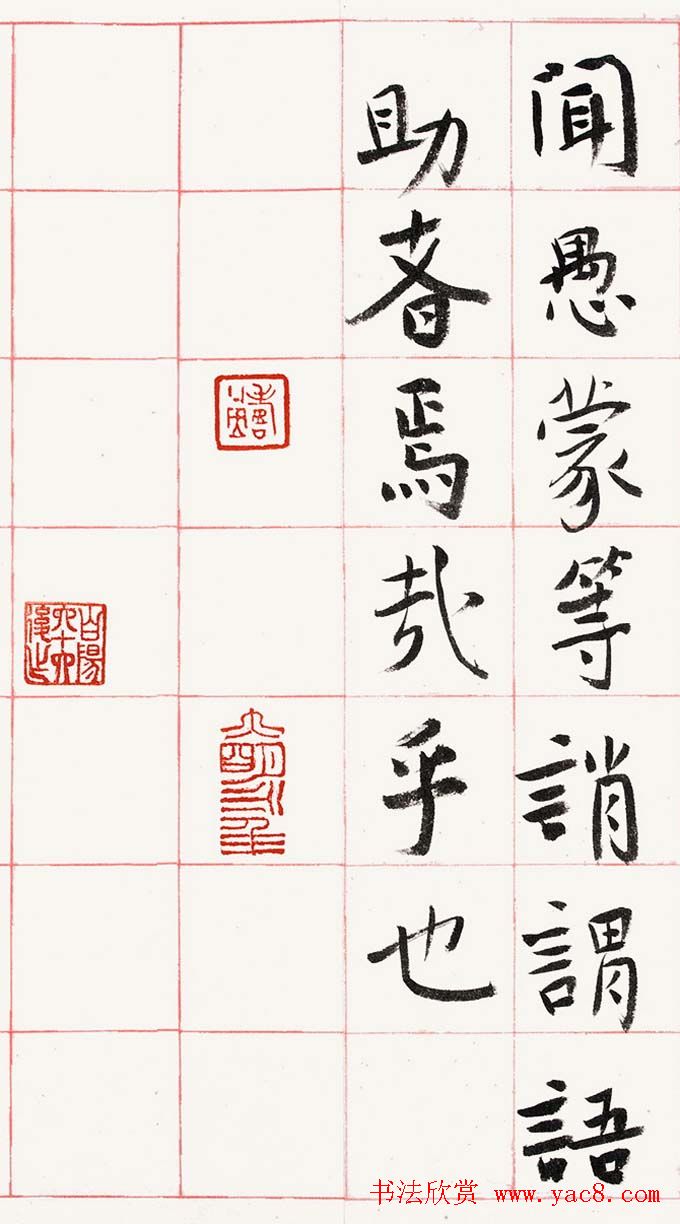 聞愚蒙等誚謂語
助者焉哉乎也
书法欣赏 www.yac8.com